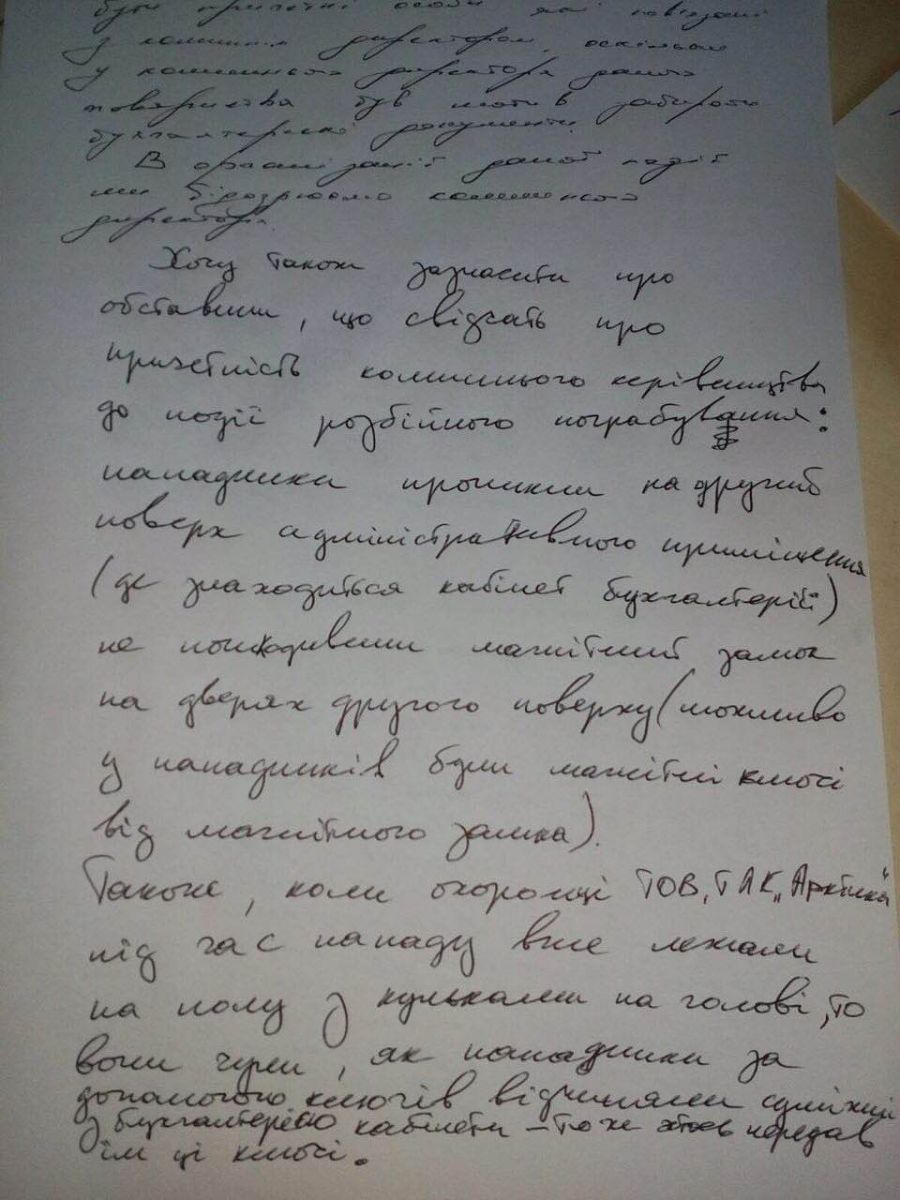 бути причетні особи які повʼязані
з колишнім директором, оскільки
у колишнього директора даного
товариства був мотив забрати
бухгалтерські документи.
В організації даної події
ми підозрюємо колишнього
директора.
Хочу також зазначити про
обставини, що свідчать про
причетність колишнього керівництва
до події розбійного пограбування:
нападники проникли на другий
поверх адміністративного приміщення
(де знаходиться кабінет бухгалтерії)
не пошкодивши магнітний замок
на дверях другого поверху (можливо
у нападників були магнітні ключі
від магнітного замка).
Також, коли охоронці ТОВ „ТАК „Арктика"
під час нападу вже лежали
на полу з кульками на голові, то
вони чули, як нападники за
допомогою ключів відчиняли суміжні
з бухгалтерією кабінети – то же хтось передав
їм ці ключі.